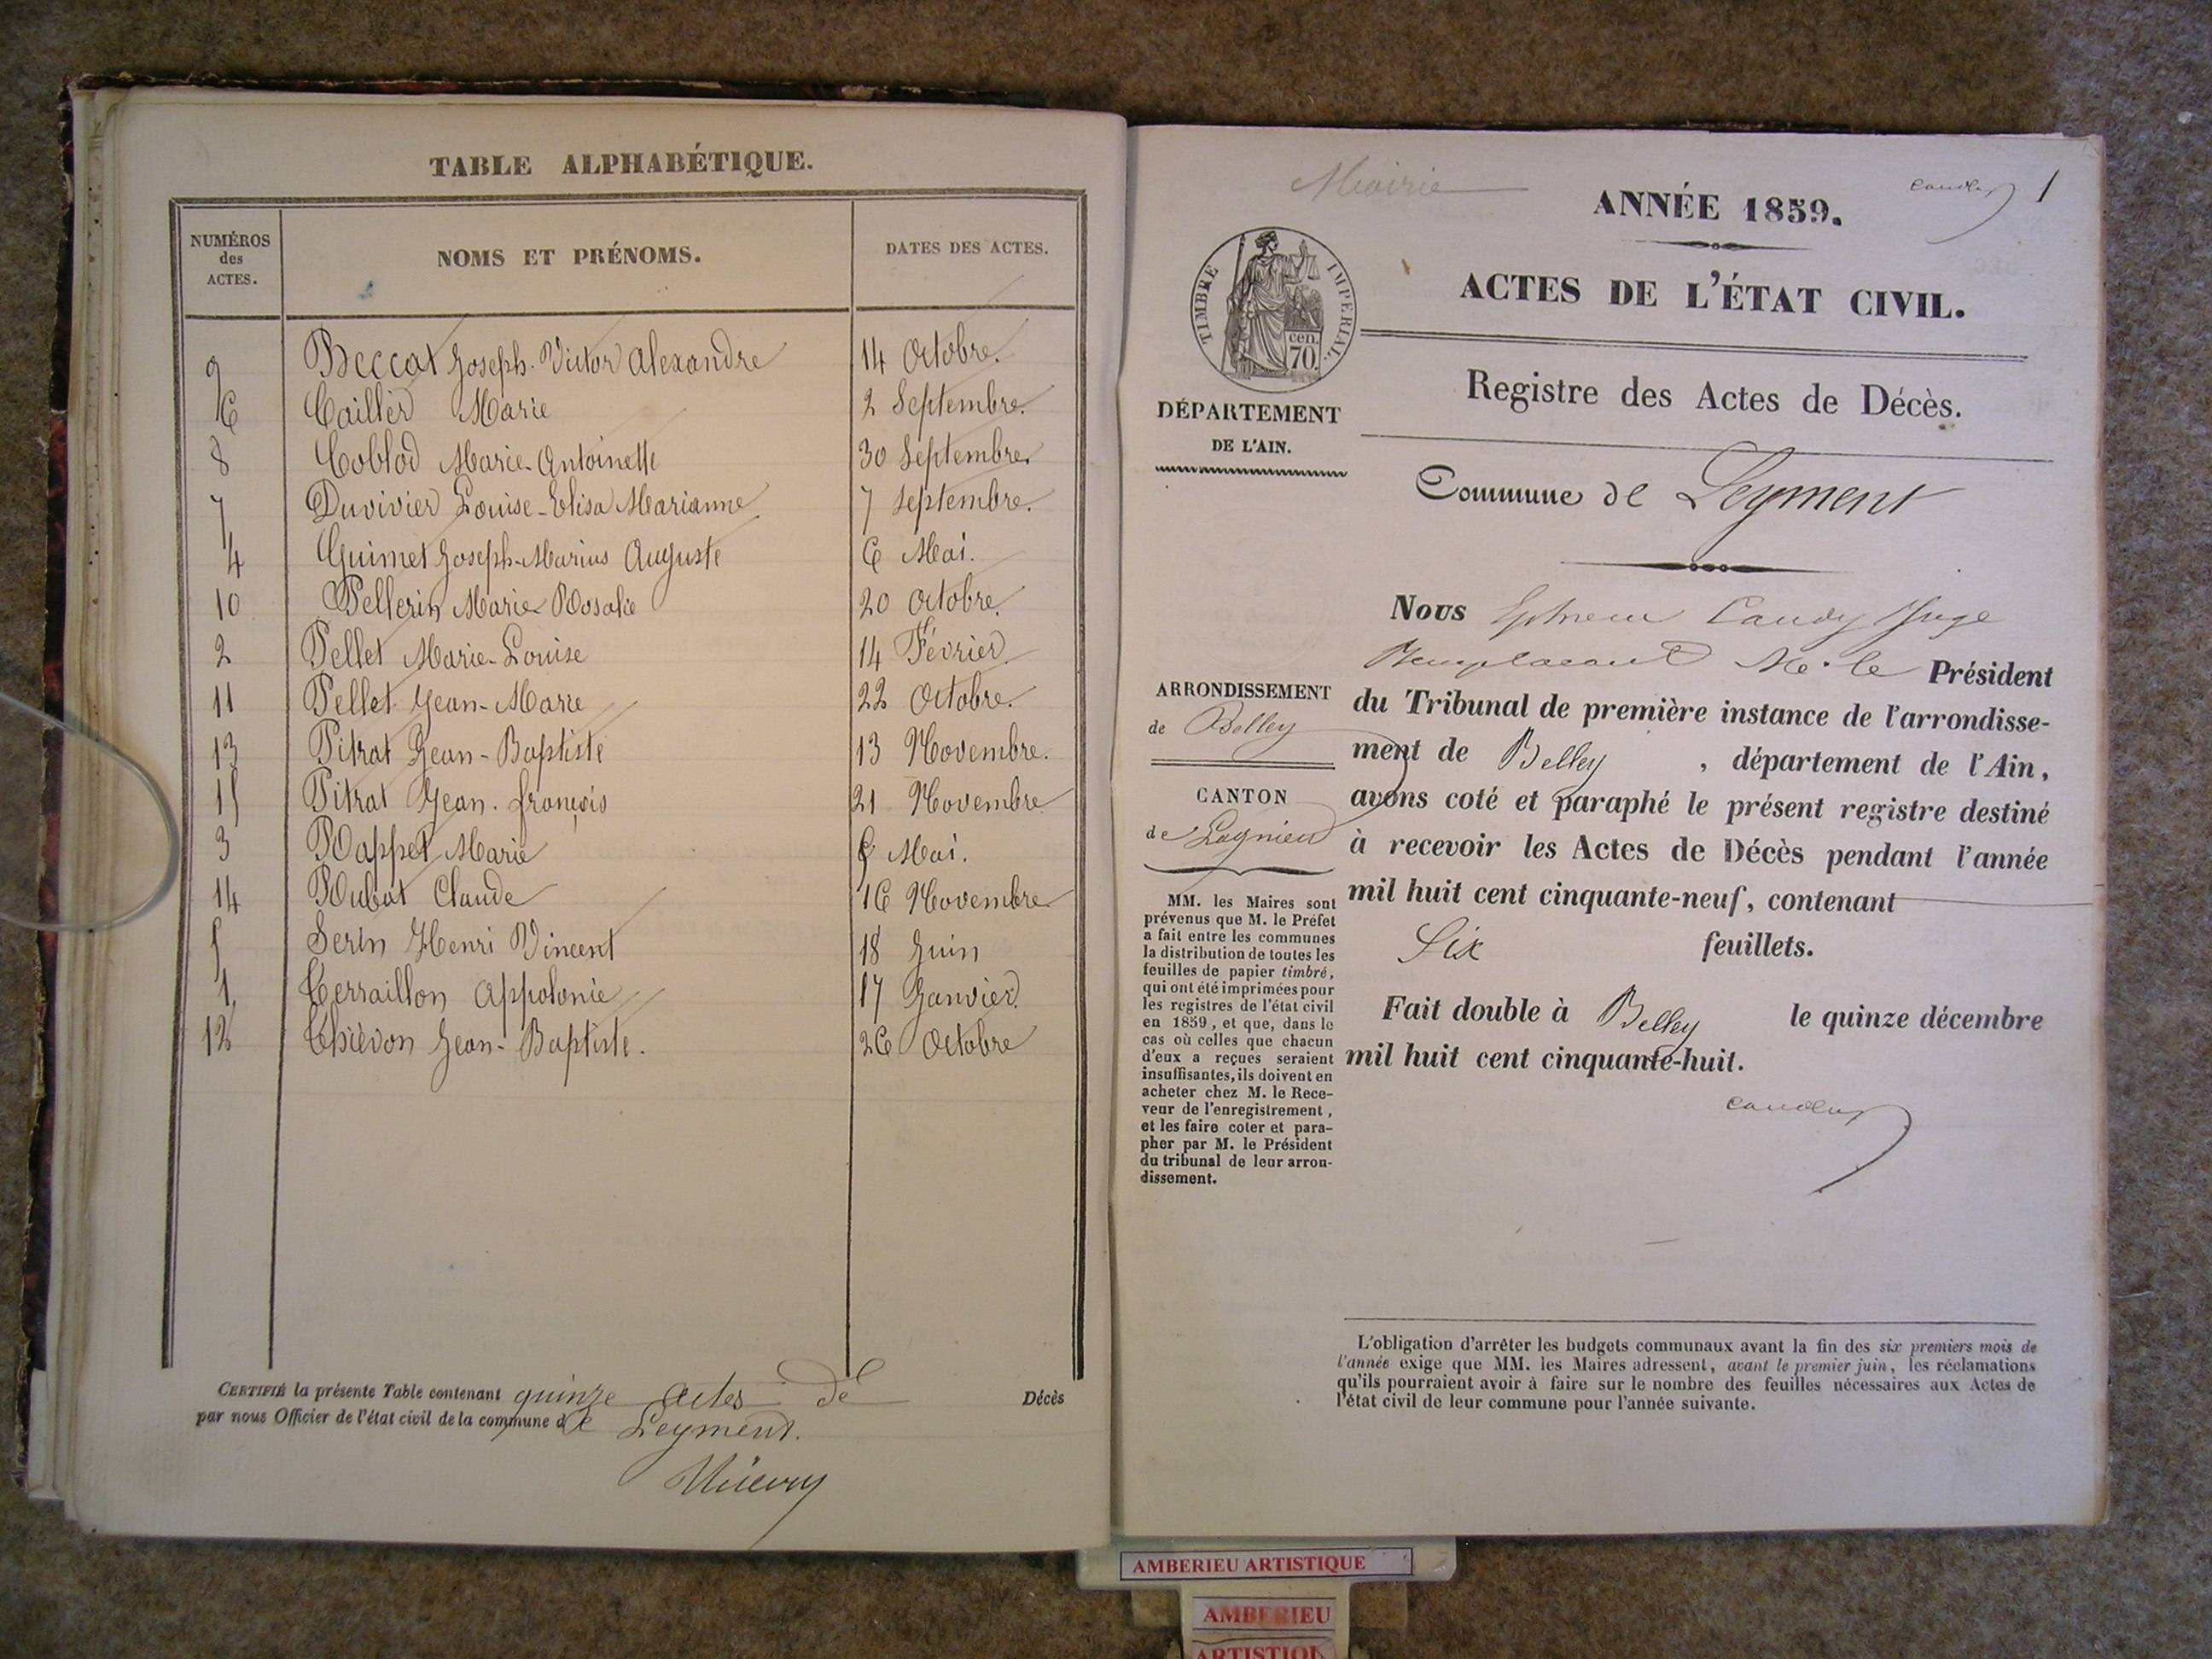 TABLE ALPHABÉTIQUE.
NUMÉROS des ACTES. NOMS ET PRÉNOMS. DATES DES ACTES.
9 Beccat Joseph-Victor Alexandre 14 Octobre.
6 Caillier Marie 2 Septembre.
8 Coblod Marie-Antoinette 30 Septembre.
7 Duvivier Louise-Elisa Marianne 7 Septembre.
4 Guimet Joseph-Marius Auguste 6 Mai.
10 Pellerin Marie Rosalie 20 Octobre.
2 Pellet Marie-Louise 14 Février
11 Pellet Jean-Marie 22 Octobre.
13 Pitrat Jean-Baptiste 13 Novembre.
15 Pitrat Jean-françois 21 Novembre
3 Rappet Marie Mai.
14 Rubat Claude 16 Novembre
5 Serin Henri Vincent 18 Juin
1 Terraillon Appolonie 17 Janvier
12 Thièvon Jean-Baptiste. 26 Octobre
CERTIFIÉ la présente Table contenant quinze actes de Décès
par nous Officier de l'état civil de la commune de Leyment.
Mairie
1
ANNÉE 1859.
ACTES DE L'ÉTAT CIVIL.
TIMBRE IMPÉRIAL.
cen.
70.
Registre des Actes de Décès.
DÉPARTEMENT
DE L'AIN.
Commune de Leyment
Nous Candy Juge
Remplacant M. le Président
du Tribunal de première instance de l'arrondisse-
ment de Belley , département de l'Ain,
avons coté et paraphé le présent registre destiné
à recevoir les Actes de Décès pendant l'année
mil huit cent cinquante-neuf, contenant
Six feuillets.
Fait double à Belley le quinze décembre
mil huit cent cinquante-huit.
ARRONDISSEMENT
de Belley
CANTON
de Lagnieu
MM. les Maires sont
prévenus que M. le Préfet
a fait entre les communes
la distribution de toutes les
feuilles de papier timbré,
qui ont été imprimées pour
les registres de l'état civil
en 1859, et que, dans le
cas où celles que chacun
d'eux a reçues seraient
insuffisantes, ils doivent en
acheter chez M. le Rece-
veur de l'enregistrement,
et les faire coter et para-
pher par M. le Président
du tribunal de leur arron-
dissement.
L'obligation d'arrêter les budgets communaux avant la fin des six premiers mois de
l'année exige que MM. les Maires adressent, avant le premier juin, les réclamations
qu'ils pourraient avoir à faire sur le nombre des feuilles nécessaires aux Actes de
l'état civil de leur commune pour l'année suivante.
AMBERIEU ARTISTIQUE
AMBERIEU